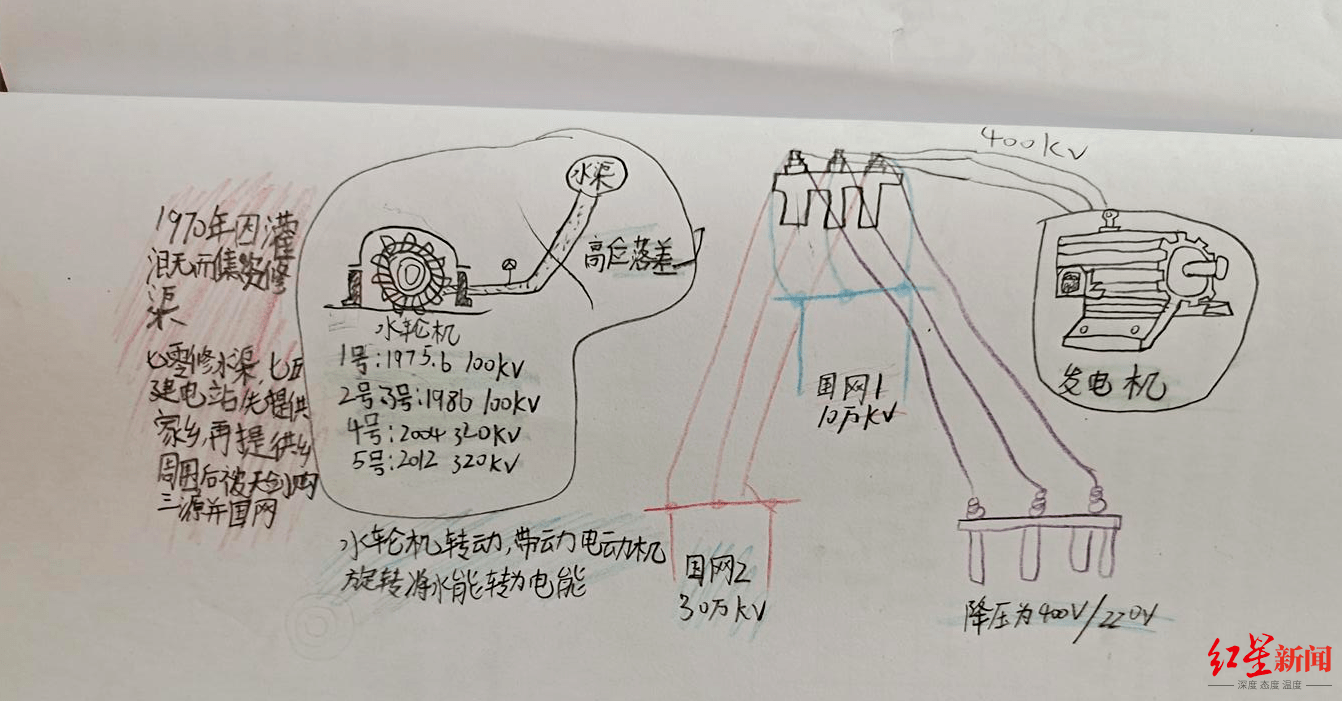 1970年因灌
沮无而集资修
渠
七零修水渠 七五
建电站先提供
家乡,再提供乡
周围后被天剑购
三源并国网
水渠
高区落差
水轮机
1号:1975.6 100kV
2号3号:1986 100kV
4号:2004 320kV
5号:2012 320kV
水轮机转动,带动力电动机
旋转将水能转为电能
400kV
发电机
国网1
10万kV
国网2
30万kV
降压为400V/220V
红星新闻
深度 态度 温度